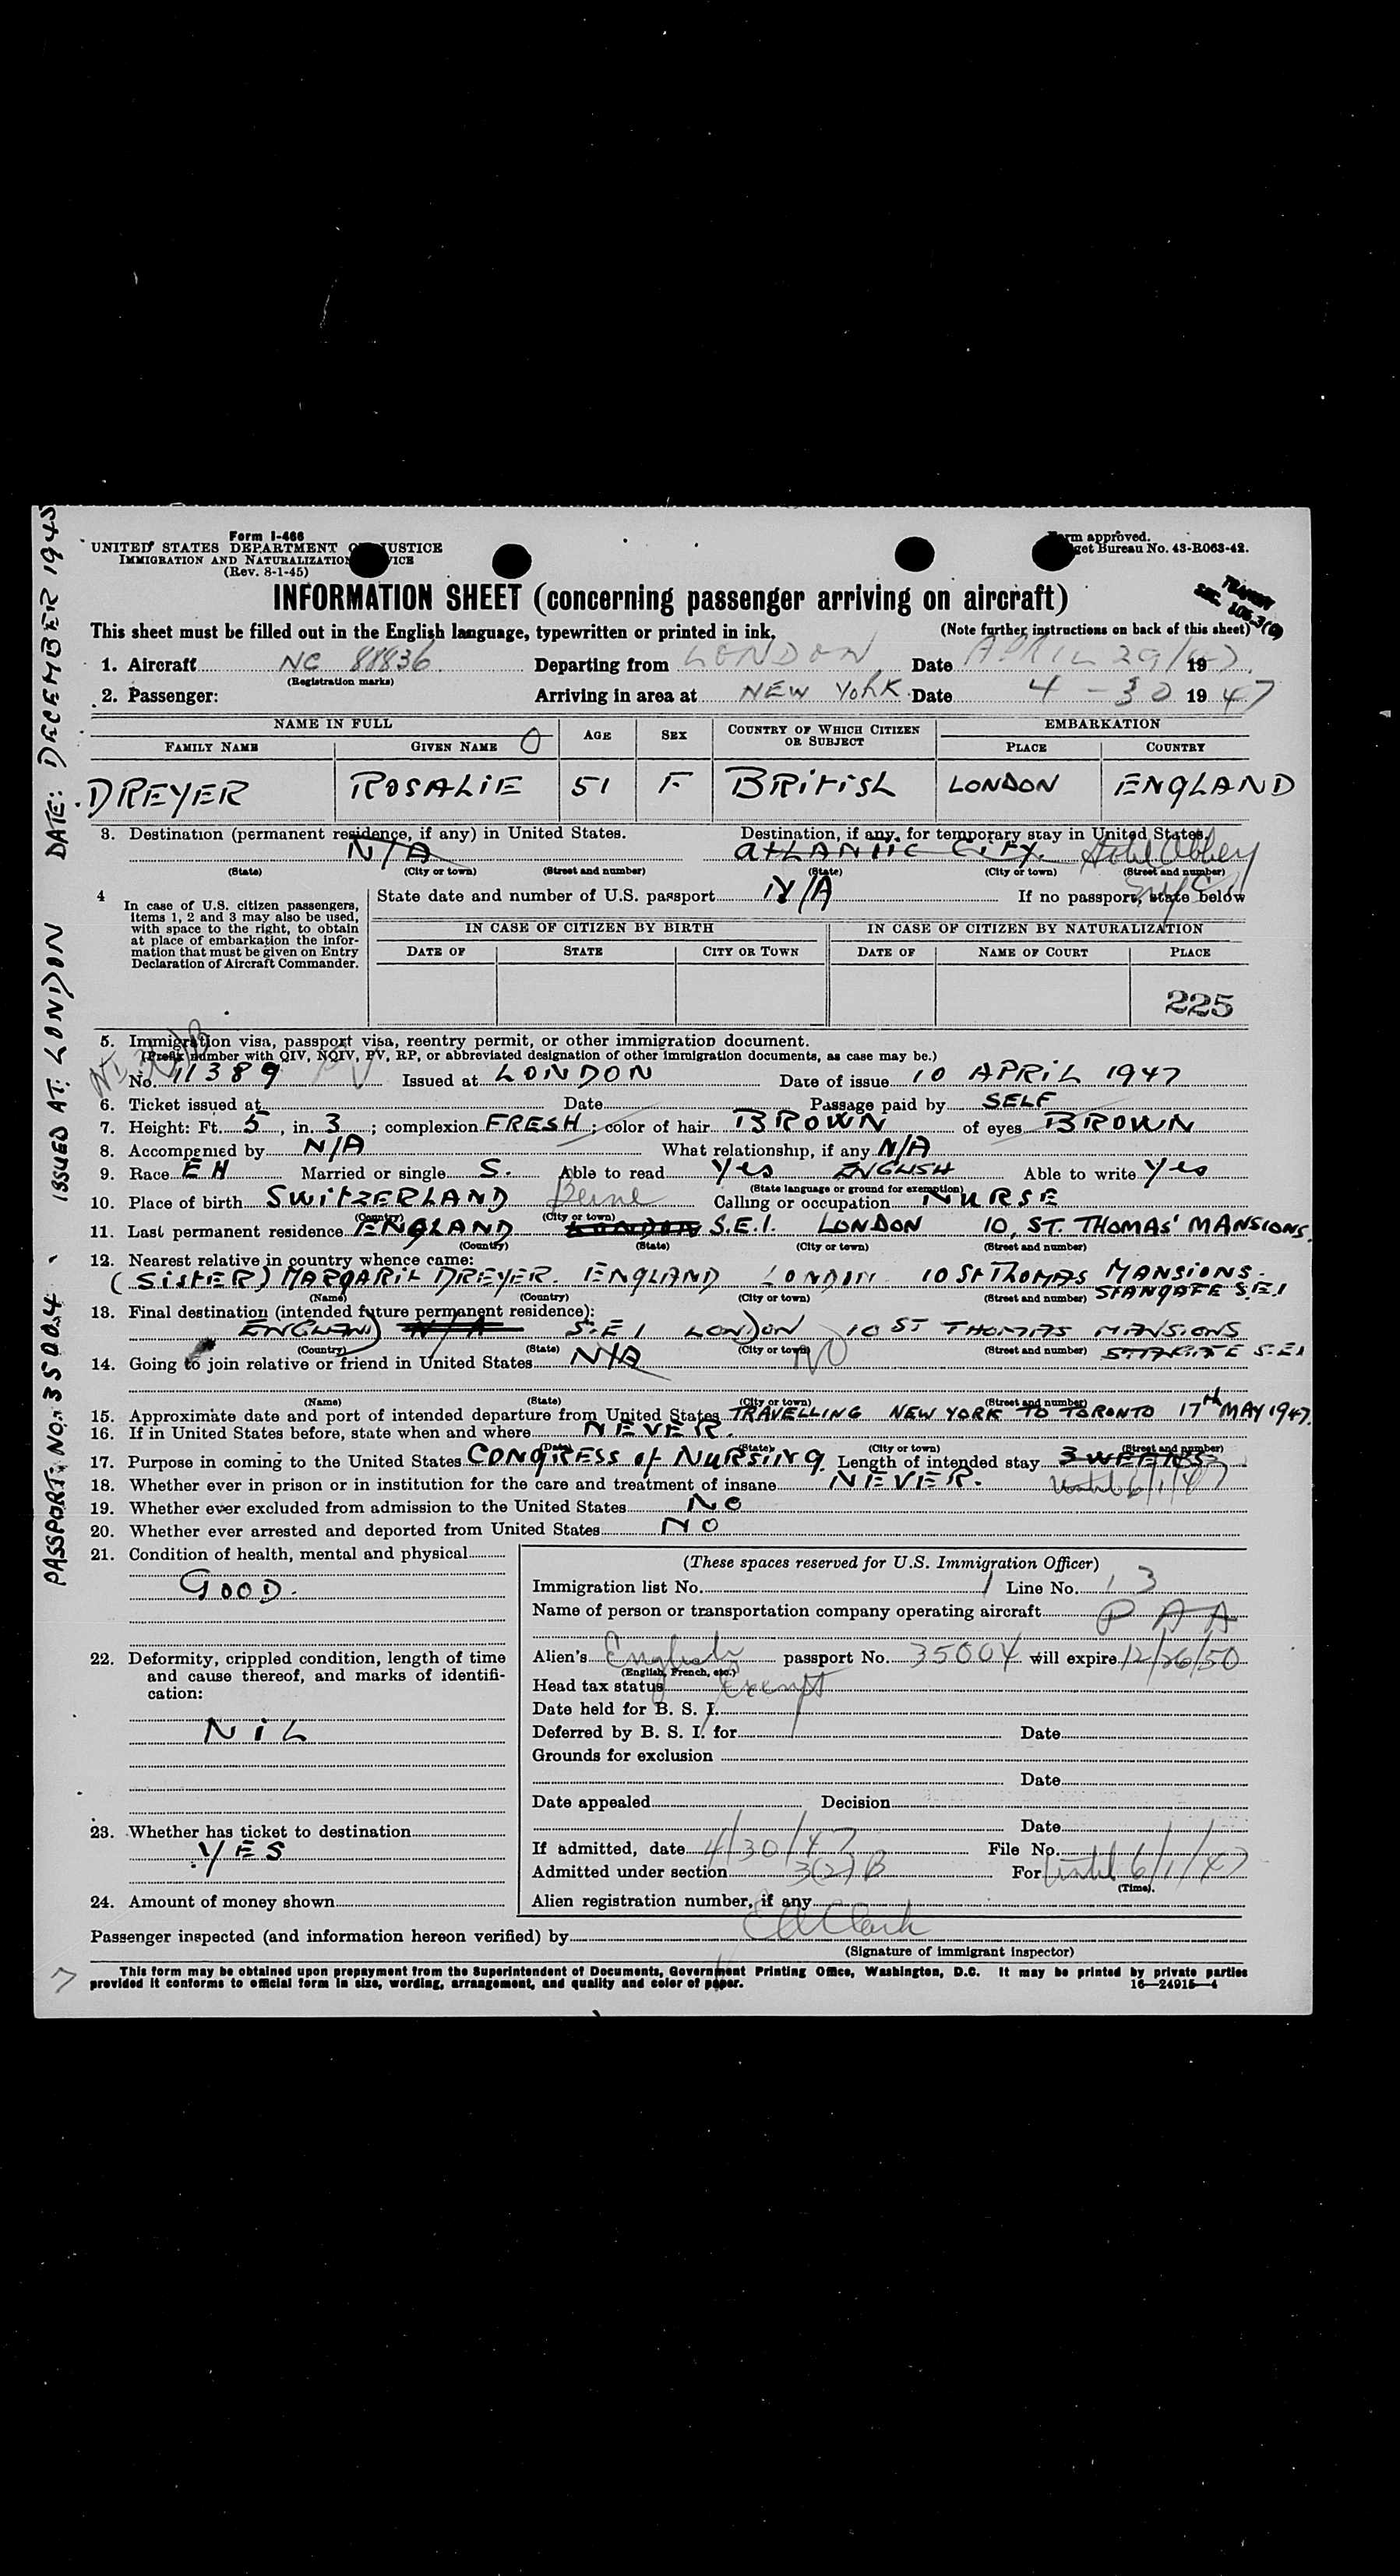 Form I-466
UNITED STATES DEPARTMENT OF JUSTICE
IMMIGRATION AND NATURALIZATION SERVICE
(Rev. 8-1-45)
Form approved.
Budget Bureau No. 43-R063-42.
INFORMATION SHEET (concerning passenger arriving on aircraft)
TRANSIT
SEC. 105.3(
This sheet must be filled out in the English language, typewritten or printed in ink. (Note further instructions on back of this sheet)
1. Aircraft NC 88836 Departing from LONDON Date APRIL 29/47 19
(Registration marks)
2. Passenger: Arriving in area at NEW YORK Date 4-30 1947
NAME IN FULL AGE SEX COUNTRY OF WHICH CITIZEN OR SUBJECT EMBARKATION
FAMILY NAME GIVEN NAME PLACE COUNTRY
DREYER ROSALIE 51 F BRITISH LONDON ENGLAND
3. Destination (permanent residence, if any) in United States. Destination, if any, for temporary stay in United States.
N/A ATLANTIC CITY. Hotel Abbey
(State) (City or town) (Street and number) (State) (City or town) (Street and number)
4 In case of U.S. citizen passengers, items 1, 2 and 3 may also be used, with space to the right, to obtain at place of embarkation the information that must be given on Entry Declaration of Aircraft Commander.
State date and number of U.S. passport N/A If no passport, state below
IN CASE OF CITIZEN BY BIRTH IN CASE OF CITIZEN BY NATURALIZATION
DATE OF STATE CITY OR TOWN DATE OF NAME OF COURT PLACE
225
5. Immigration visa, passport visa, reentry permit, or other immigration document.
(Prefix number with QIV, NQIV, PV, RP, or abbreviated designation of other immigration documents, as case may be.)
No. 11389 PV Issued at LONDON Date of issue 10 APRIL 1947
6. Ticket issued at Date Passage paid by SELF
7. Height: Ft. 5, in. 3; complexion FRESH; color of hair BROWN of eyes BROWN
8. Accompanied by N/A What relationship, if any N/A
9. Race EH Married or single S. Able to read YES ENGLISH Able to write YES
(State language or ground for exemption)
10. Place of birth SWITZERLAND Berne Calling or occupation NURSE
(Country) (City or town)
11. Last permanent residence ENGLAND LONDON S.E.1. LONDON 10, ST. THOMAS' MANSIONS.
(Country) (State) (City or town) (Street and number)
12. Nearest relative in country whence came:
(SISTER) MARGARIT DREYER. ENGLAND LONDON 10 ST THOMAS MANSIONS.
(Name) (Country) (City or town) (Street and number) STANGATE S.E.1
13. Final destination (intended future permanent residence):
ENGLAND N/A S.E1 LONDON 10 ST THOMAS MANSIONS
(Country) (State) (City or town) (Street and number) STANGATE S.E1
14. Going to join relative or friend in United States N/A NO
(Name) (State) (City or town) (Street and number)
15. Approximate date and port of intended departure from United States TRAVELLING NEW YORK TO TORONTO 17th MAY 1947.
16. If in United States before, state when and where NEVER.
(Date) (State) (City or town) (Street and number)
17. Purpose in coming to the United States CONGRESS of NURSING. Length of intended stay 3 WEEKS
18. Whether ever in prison or in institution for the care and treatment of insane NEVER. Until 6/1/47
19. Whether ever excluded from admission to the United States NO
20. Whether ever arrested and deported from United States NO
21. Condition of health, mental and physical
GOOD.
22. Deformity, crippled condition, length of time and cause thereof, and marks of identification:
NIL
23. Whether has ticket to destination
YES
24. Amount of money shown
(These spaces reserved for U.S. Immigration Officer)
Immigration list No. 1 Line No. 13
Name of person or transportation company operating aircraft PAA
Alien's English passport No. 35004 will expire 12/26/50
(English, French, etc.)
Head tax status Exempt
Date held for B. S. I.
Deferred by B. S. I. for Date
Grounds for exclusion
Date
Date appealed Decision
Date
If admitted, date 4/30/47 File No.
Admitted under section 3(2) B For until 6/1/47
(Time)
Alien registration number, if any
Passenger inspected (and information hereon verified) by Clark
(Signature of immigrant inspector)
This form may be obtained upon prepayment from the Superintendent of Documents, Government Printing Office, Washington, D.C. It may be printed by private parties
provided it conforms to official form in size, wording, arrangement, and quality and color of paper. 16—24915—4
7
PASSPORT No. 35004 ISSUED AT: LONDON DATE: DECEMBER 1945